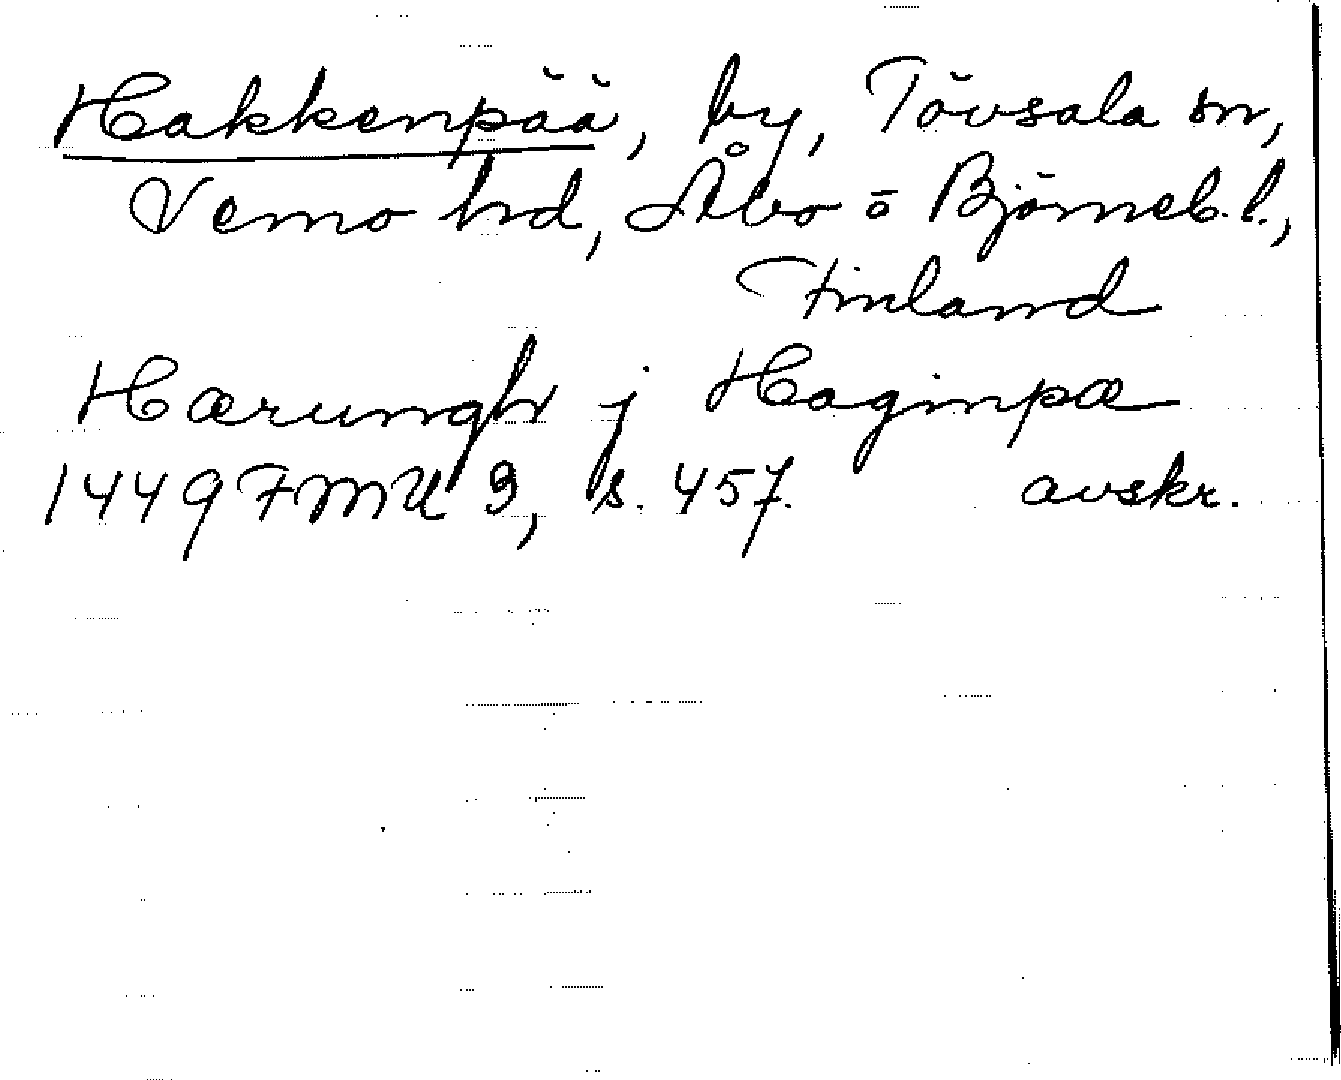 Hakkenpää, by, Tövsala sn,
Vemo hd, Åbo o Björneb. l.,
Finland
Hærungh j Haginpæ
1449 FMU 3, s. 457. avskr.